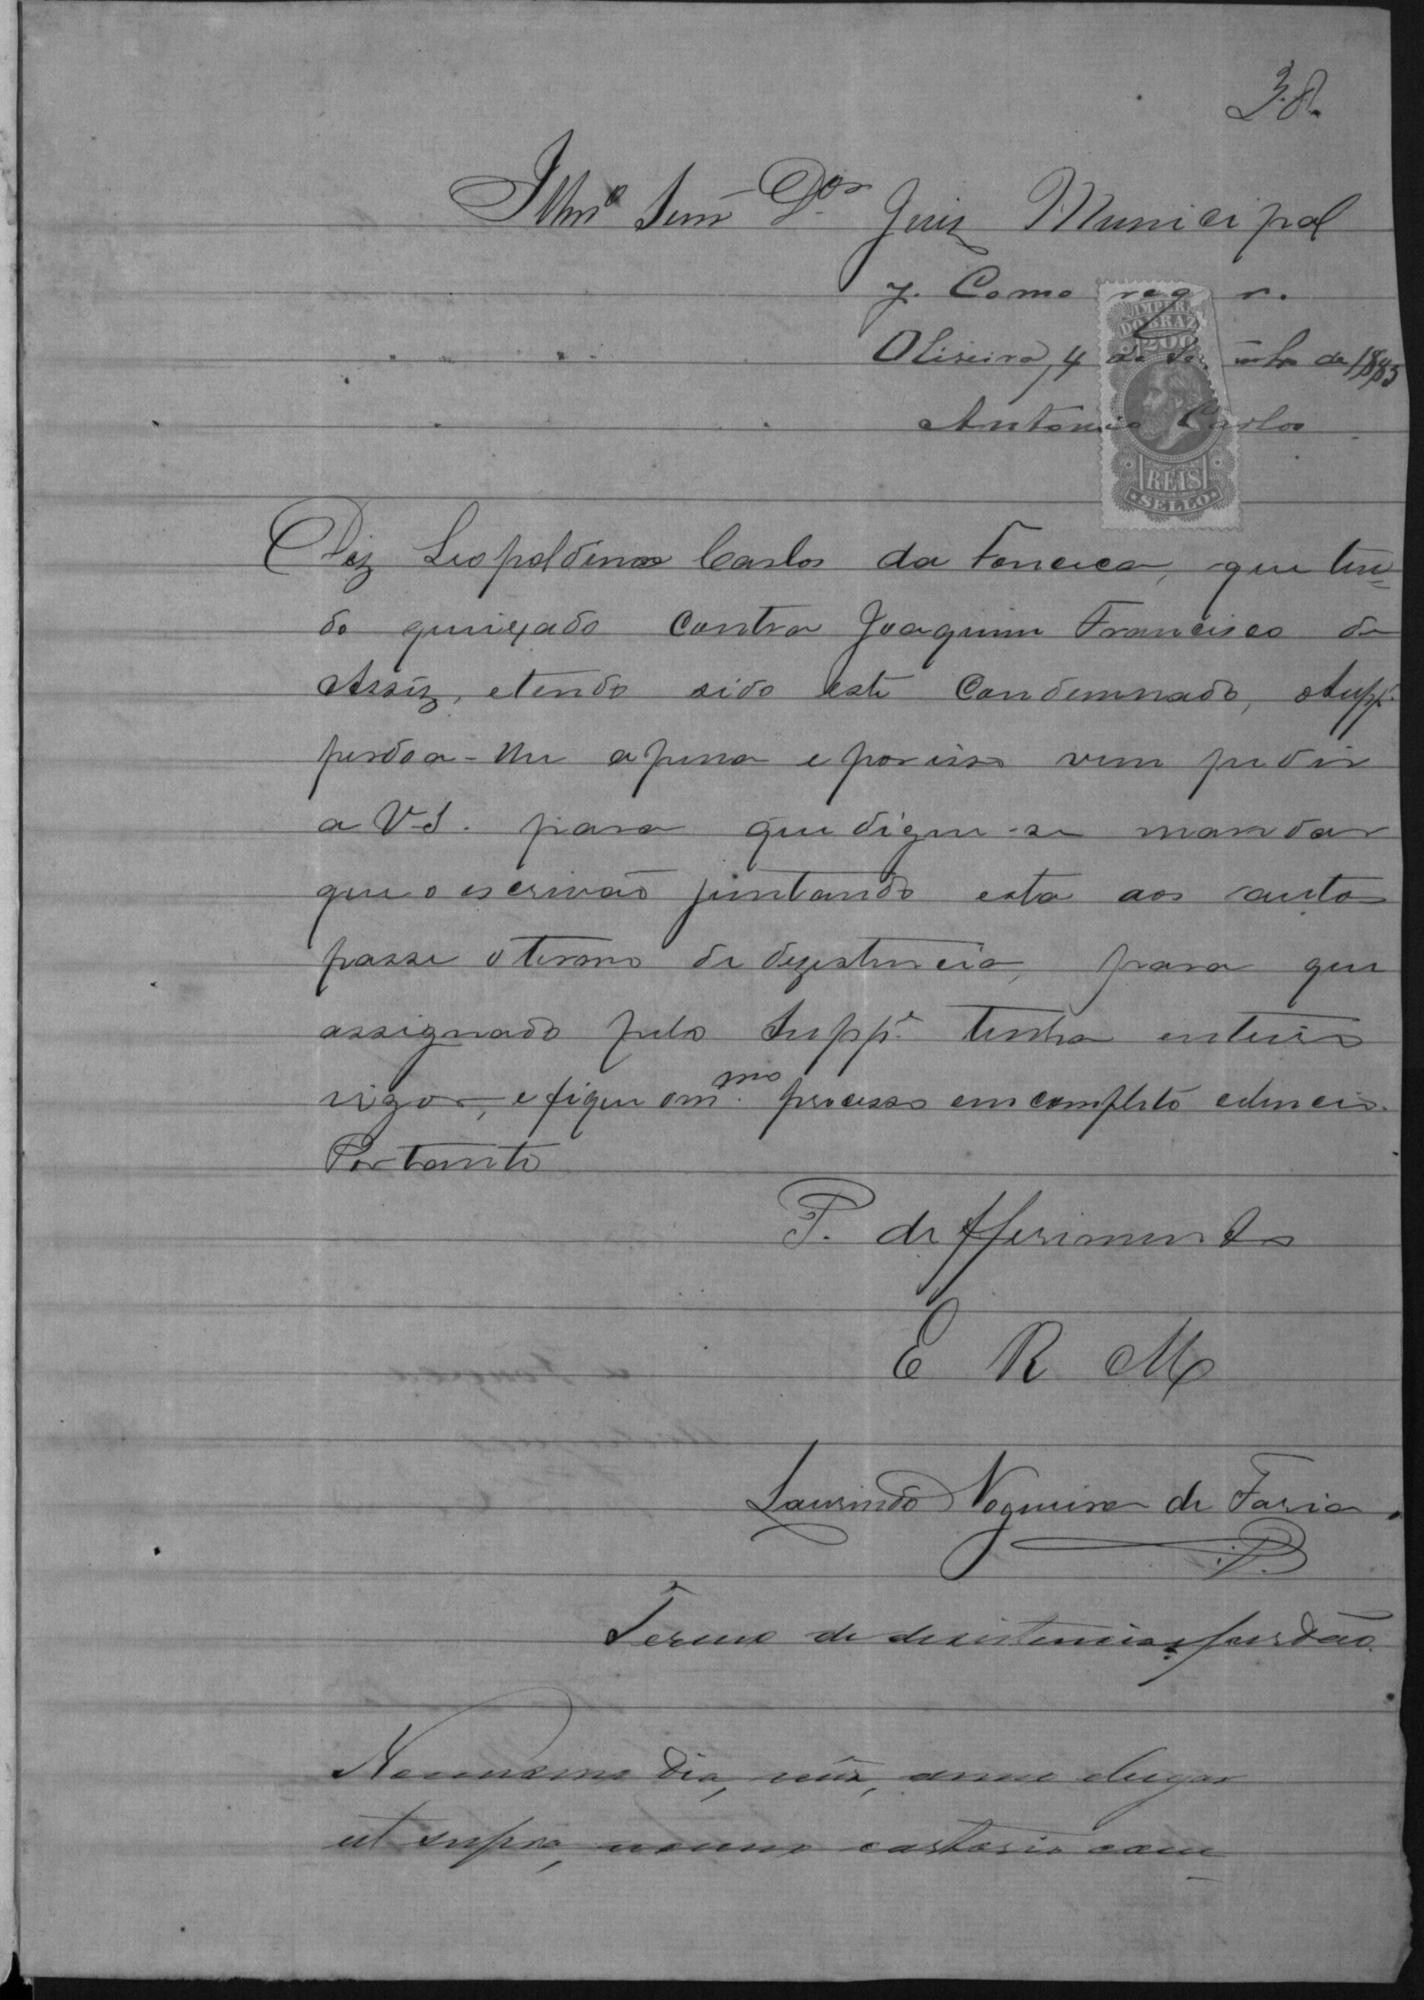 38.
Illmo Senr Dor Juiz Municipal
J. Como requer.
Oliveira, 4 de de 1885
Antonio Carlos
IMPERIO
DO BRAZIL
200
REIS
SELLO
Diz Leopoldino Carlos da Fonceca, que ten=
do queixado contra Joaquim Francisco de
Assiz, e tendo sido este Condemnado, o Suppe
perdoa-lhe a pena e por isso vem pedir
a V.S. para que digne-se mandar
que o escrivão juntando esta aos autos
passe o termo de dezistencia, para que
assignado pelo Suppe tenha inteiro
vigor, e fique o mmo processo em completo cilencio.
Portanto
P. defferimento
E R M
Laurindo Nogueira de Faria.
Termo de desistencia e perdão.
No mesmo dia, mez, anno e lugar
ut supra, em meu cartorio com